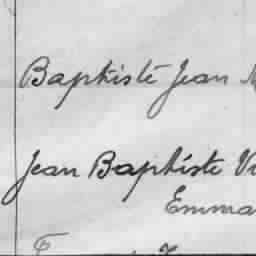 Baptiste Jean
Jean Baptiste
Emma